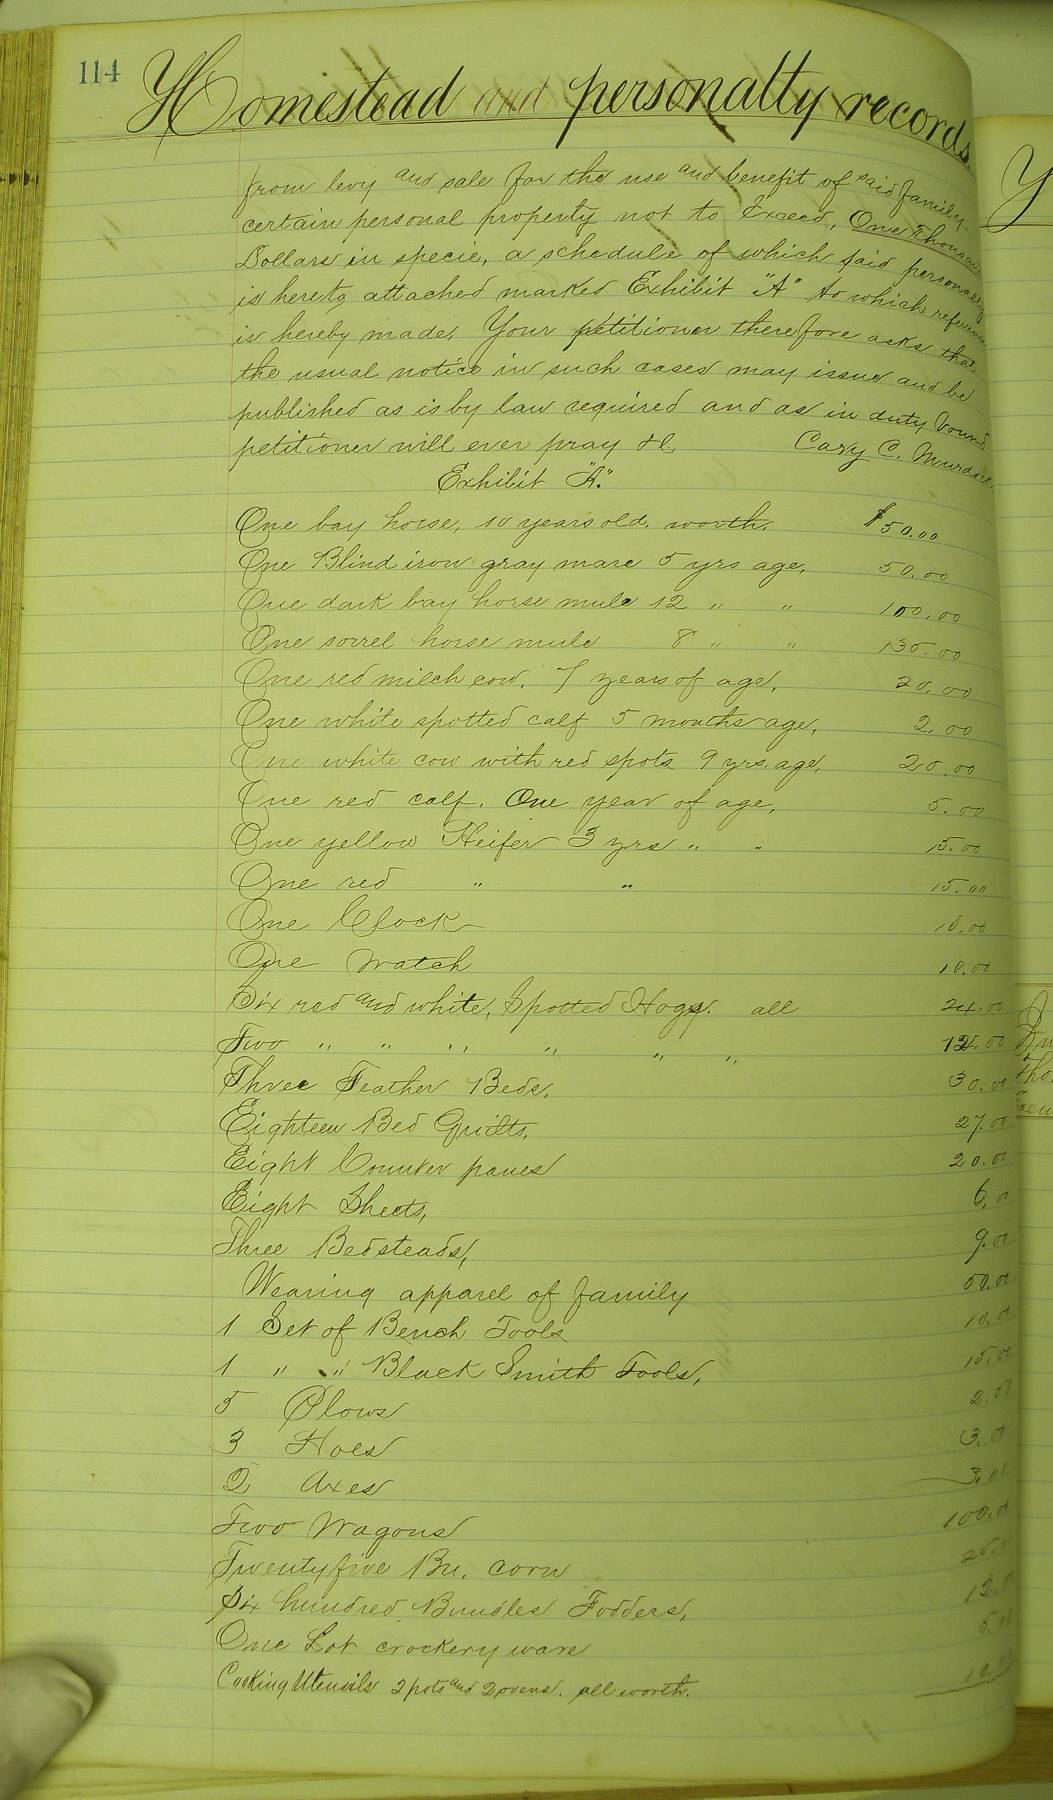 114
Homestead and personalty records
from levy and sale for the use and benefit of said family
certain personal property not to Exceed, One Thousand
Dollars in specie, a schedule of which said personalty
is hereto attached marked Exhibit "A" to which reference
is hereby made. Your petitioner therefore asks that
the usual notice in such cases may issue and be
published as is by law required and as in duty bound
petitioner will ever pray &c Cary C. Murdock
Exhibit "A."
One bay horse, 10 years old. worth. $50.00
One Blind iron gray mare 5 yrs age, 50.00
One dark bay horse mule 12 " " 100.00
One sorrel horse mule 8 " " 130.00
One red milch cow. 7 years of age, 20.00
One white spotted calf 5 months age, 2.00
One white cow with red spots 9 yrs. age, 20.00
One red calf. One year of age, 5.00
One yellow Heifer 3 yrs " " 15.00
One red " " 15.00
One Clock 10.00
One Watch 10.00
Six red and white, Spotted Hogs. all 24.00
Two " " " " " " 12.00
Three Feather Beds, 30.00
Eighteen Bed Quilts, 27.00
Eight Counter panes 20.00
Eight Sheets, 6.00
Three Bedsteads, 9.00
Wearing apparel of family 50.00
1 Set of Bench Tools 10.00
1 " " Black Smith Tools, 15.00
5 Plows 2.00
3 Hoes 3.00
2 Axes 3.00
Two Wagons 100.0
Twenty five Bu. corn
Six hundred Bundles Fodders, 12.0
One Lot crockery ware 5.00
Cooking Utensils 2 pots and 2 ovens. all worth.
Y